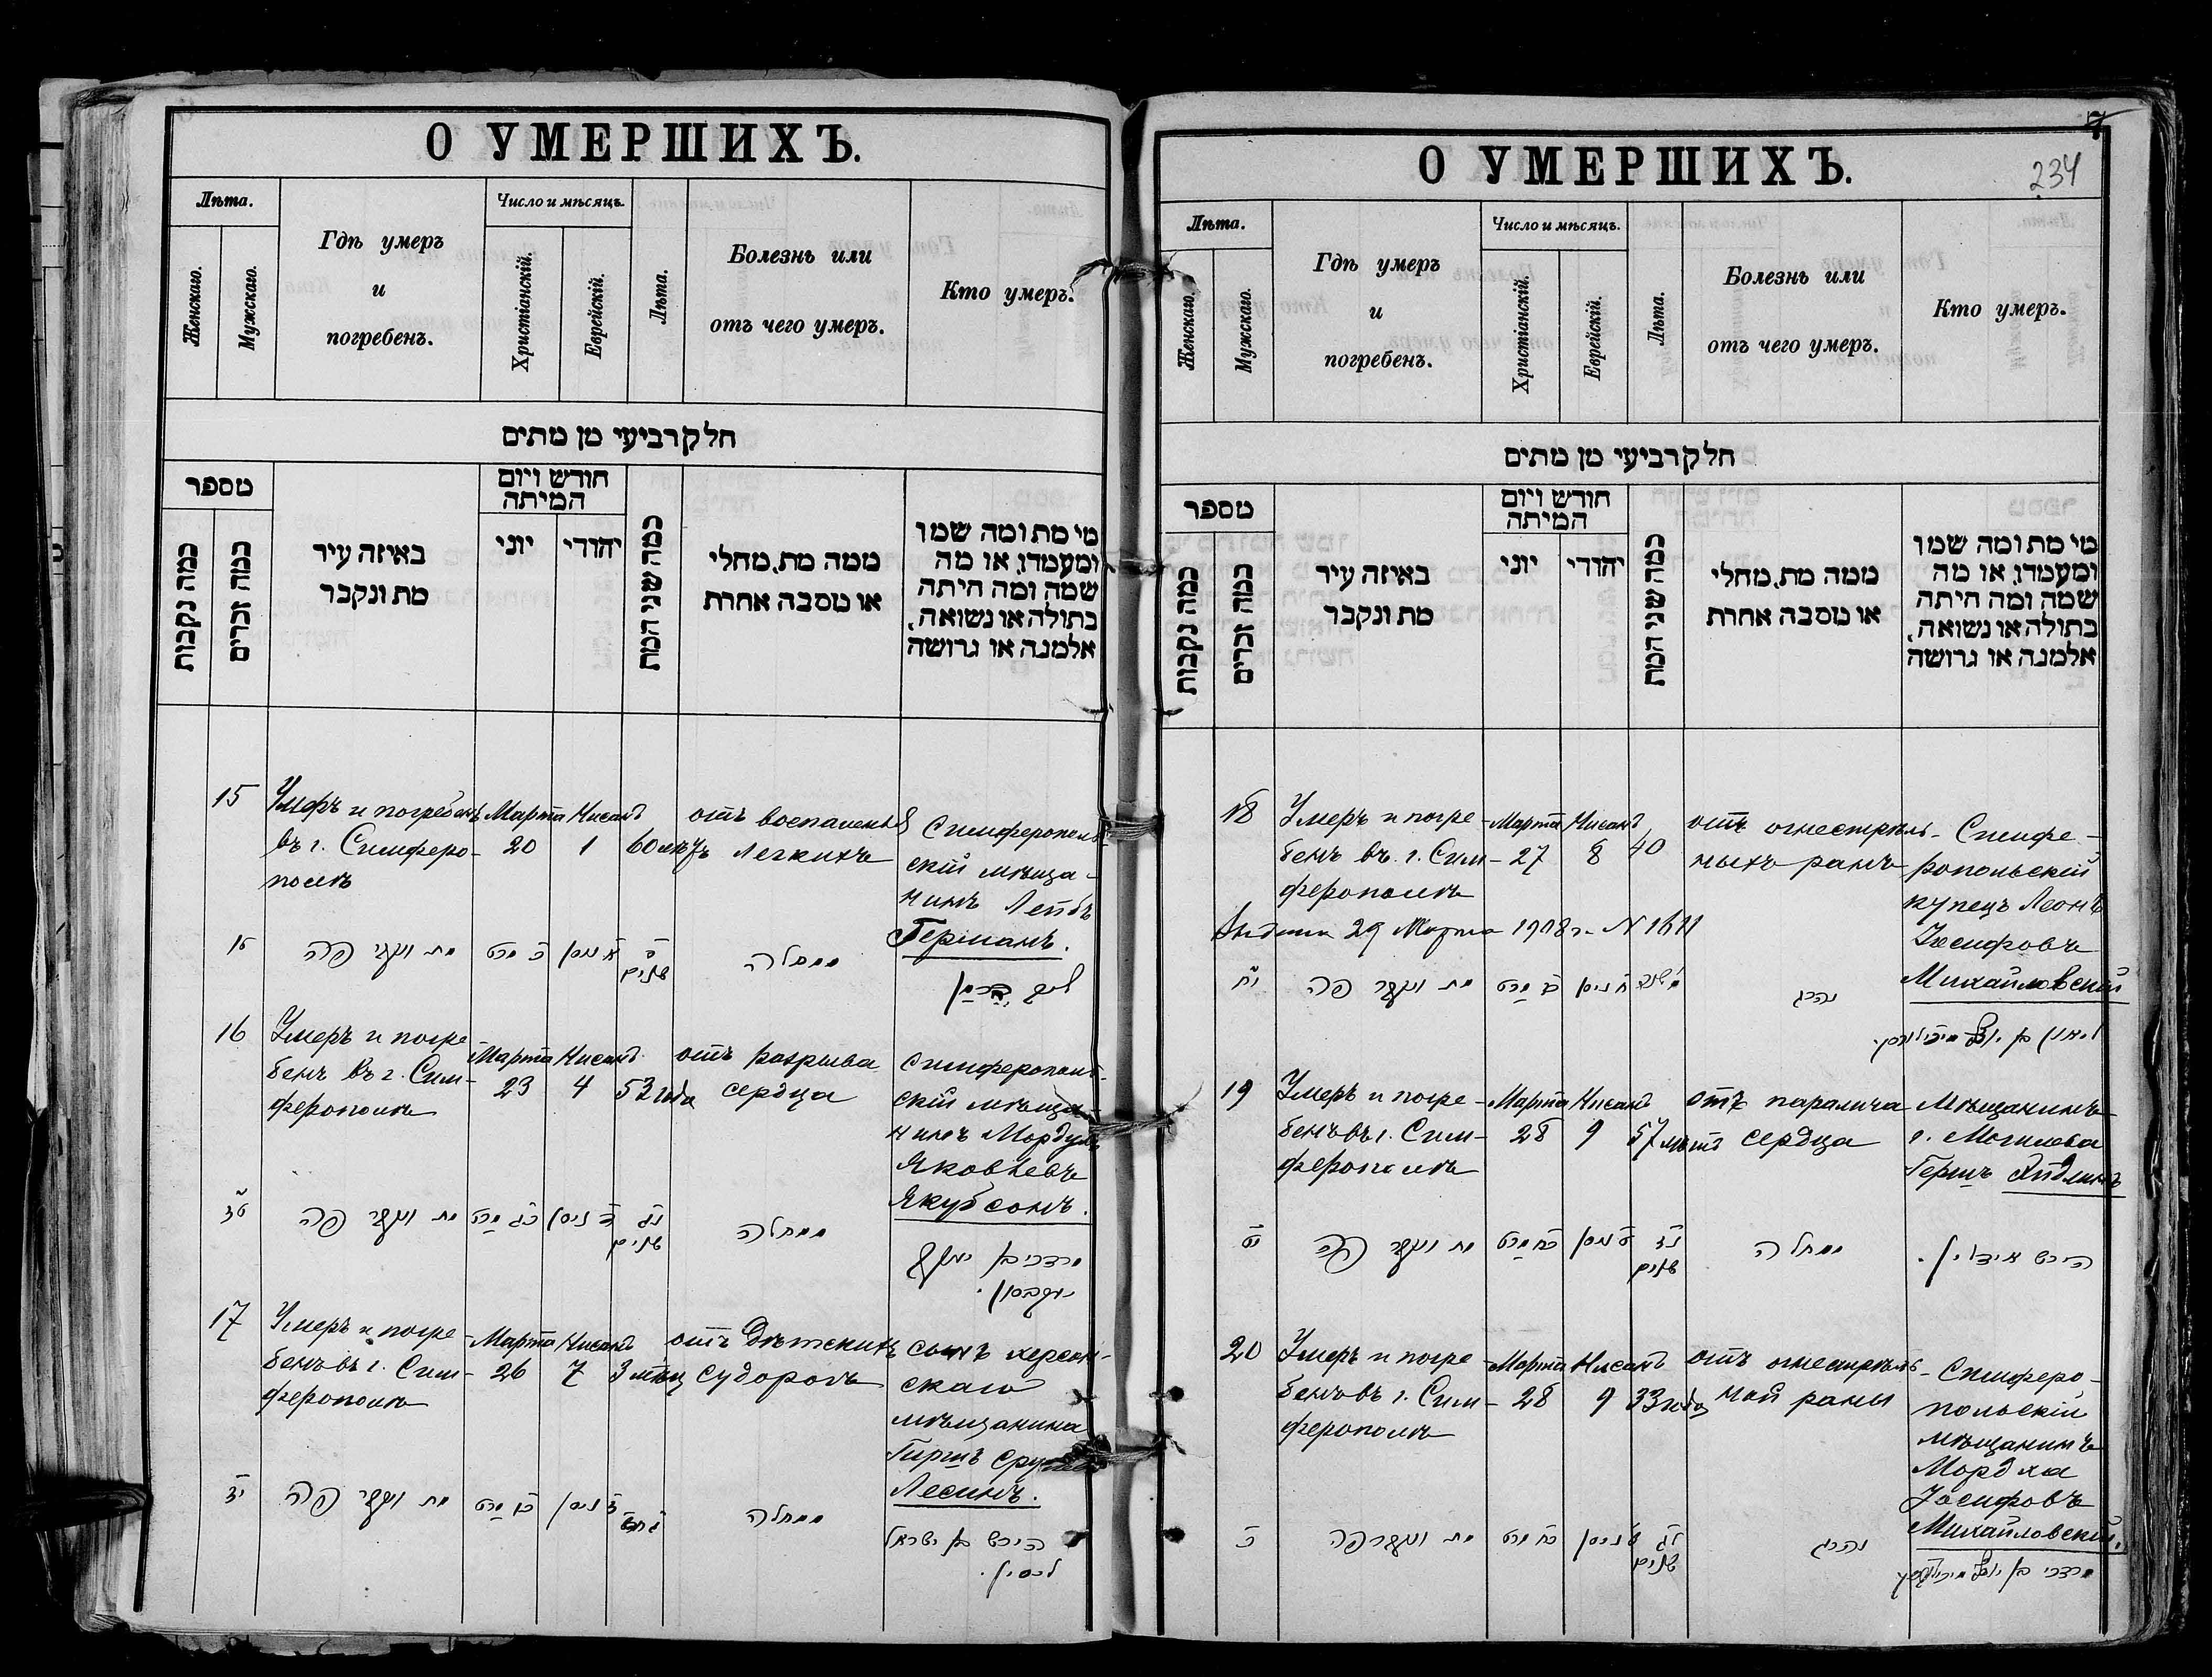 О УМЕРШИХЪ.
Лѣта.
Женскаго.
Мужскаго.
Гдѣ умеръ
и
погребенъ.
Число и мѣсяцъ.
Христіанскій.
Еврейскій.
Лѣта.
Болезнь или
отъ чего умеръ.
Кто умеръ.
חלק רביעי מן מתים
מספר
כמה נקבות
כמה זכרים
באיזה עיר
מת ונקבר
חודש ויום
המיתה
יוני
יהודי
כמה שני המת
ממה מת, מחלי
או מסבה אחרת
מי מת ומה שמו
ומעמדו, או מה
שמה ומה היתה
בתולה או נשואה,
אלמנה או גרושה
15
Умеръ и погребенъ
въ г. Симферо-
полѣ
Марта
20
Нисанъ
1
60 лѣтъ
отъ воспаленія
Легкихъ
Симферополь-
скій мѣща-
нинъ Лейбъ
Германъ.
מת ונקבר פה
כ מרט
א ניסן
ס
שנים
ממחלה
16
Умеръ и погре-
бенъ въ г. Сим-
ферополѣ
Марта
23
Нисанъ
4
53 года
отъ разрыва
сердца
Симферополь-
скій мѣща-
нинъ Мордухъ
Яковлевъ
Якубсонъ.
טז
מת ונקבר פה
כג מרט
ד ניסן
נג
שנים
ממחלה
מרדכי בן יעקב
יעקבסון.
17
Умеръ и погре-
бенъ въ г. Сим-
ферополѣ
Марта
26
Нисанъ
7
3 мѣсц
отъ Дѣтскихъ
судорогъ
сынъ херсон-
скаго
мѣщанина
Гиршъ
Лесинъ.
יז
מת ונקבר פה
כו מרט
ז ניסן
ממחלה
הירש בן ישראל
לעסין.
О УМЕРШИХЪ.
234
Лѣта.
Женскаго.
Мужскаго.
Гдѣ умеръ
и
погребенъ.
Число и мѣсяцъ.
Христіанскій.
Еврейскій.
Лѣта.
Болезнь или
отъ чего умеръ.
Кто умеръ.
חלק רביעי מן מתים
מספר
כמה נקבות
כמה זכרים
באיזה עיר
מת ונקבר
חודש ויום
המיתה
יוני
יהודי
כמה שני המת
ממה מת, מחלי
או מסבה אחרת
מי מת ומה שמו
ומעמדו, או מה
שמה ומה היתה
בתולה או נשואה,
אלמנה או גרושה
18
Умеръ и погре-
бенъ въ г. Сим-
ферополѣ
Марта
27
Нисанъ
8
40
отъ огнестрѣль-
ныхъ ранъ
Симфе-
ропольскій
купецъ Леонъ
Іосифовъ
Михайловскій
29 Марта 1908 г. N 1611
יח
מת ונקבר פה
כז מרט
ח ניסן
נהרג
19
Умеръ и погре-
бенъ въ г. Сим-
ферополѣ
Марта
28
Нисанъ
9
57 лѣтъ
отъ паралича
сердца
Мѣщанинъ
г. Могилева
Гершъ Айдлинъ
יט
מת ונקבר פה
כח מרט
ט ניסן
נז
שנים
ממחלה
הירש אידלין.
20
Умеръ и погре-
бенъ въ г. Сим-
ферополѣ
Марта
28
Нисанъ
9
33 года
отъ огнестрѣль-
ной раны
Симферо-
польскій
мѣщанинъ
Мордха
Іосифовъ
Михайловскій.
כ
מת ונקבר פה
כח מרט
ט ניסן
לג
שנים
נהרג
מרדכי בן יוסף